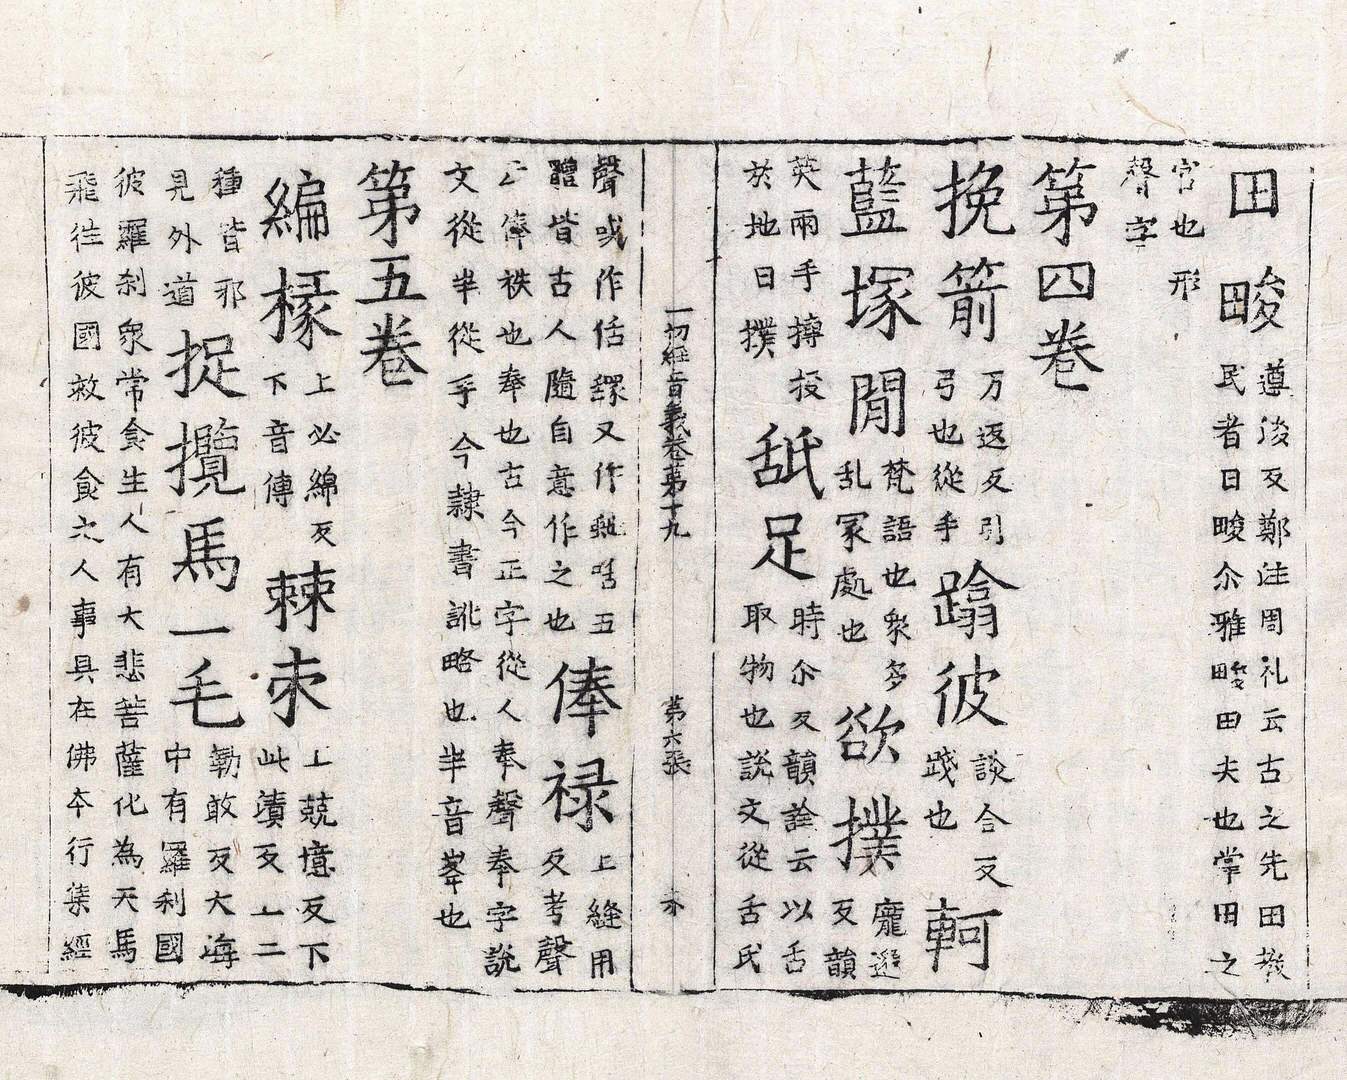 田畯遵浚反鄭注周礼云古之先田教民者曰畯尒雅畯田夫也掌田之
官也形聲字
第四卷
挽箭万返反引弓也從手蹹彼談合反踐也軻
藍塚閒梵語也衆多乱冢處也欲撲龐邈反韻
英兩手摶投於地曰撲舐足時尒反韻詮云以舌取物也說文從舌氏
一切經音義卷苐十九 第六張
聲或作𦧇又作五俸禄上縫用反考聲
體皆古人隨自意作之也云俸祑也奉也古今正字從人奉聲奉字說
文從半從手今隷書訛略也半音峯也
第五卷
編椽上必綿反下音傳棘朿上兢憶反下此漬反上二
種皆邪見外道捉攬馬一毛勒敢反大海中有羅刹國
彼羅刹衆常食生人有大悲菩薩化為天馬
飛往彼國救彼食之人事具在佛夲行集經